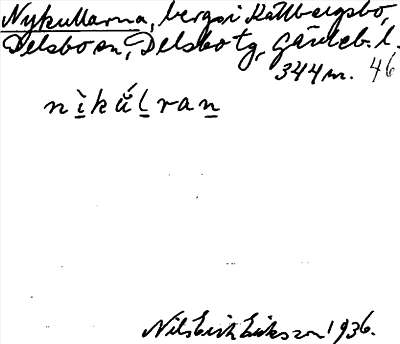 Nykullarna, bergsi Kallbergsbo,
Delsbo sn, Delsbo tg, Gävleb. l.
344 m. 46
nìkúlran
Nils Erik Eriksson 1936.